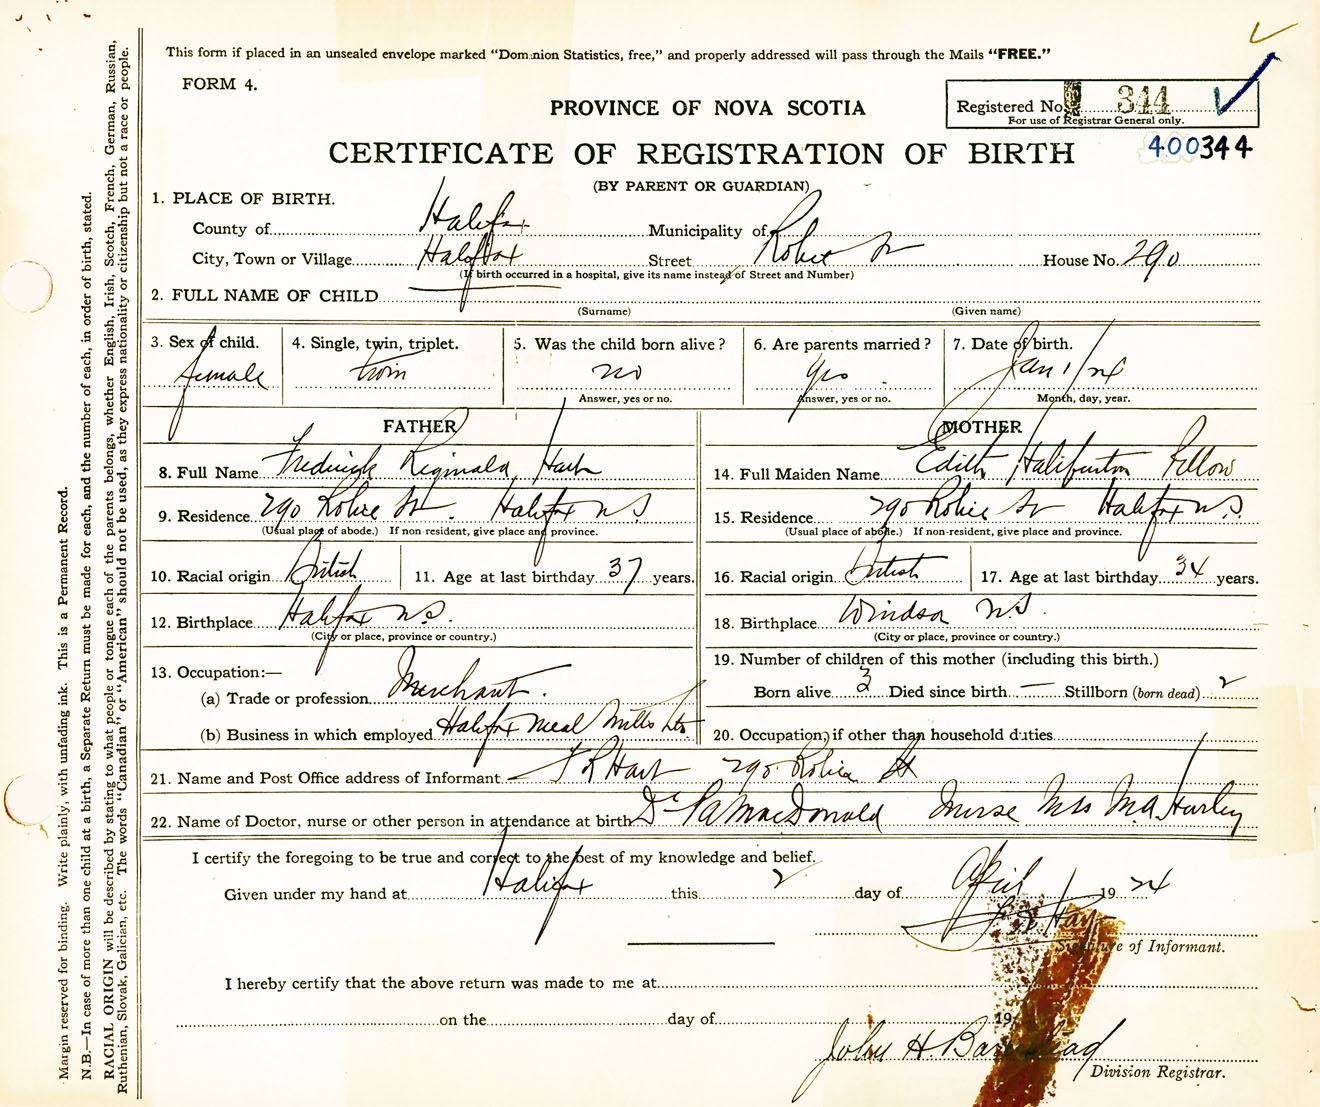 This form if placed in an unsealed envelope marked "Dominion Statistics, free," and properly addressed will pass through the Mails "FREE."
FORM 4.
Registered No. 344
For use of Registrar General only.
PROVINCE OF NOVA SCOTIA
400344
CERTIFICATE OF REGISTRATION OF BIRTH
(BY PARENT OR GUARDIAN)
1. PLACE OF BIRTH.
County of Halifax Municipality of
City, Town or Village Halifax Street Robie St House No. 290
(If birth occurred in a hospital, give its name instead of Street and Number)
2. FULL NAME OF CHILD
(Surname) (Given name)
3. Sex of child. 4. Single, twin, triplet. 5. Was the child born alive? 6. Are parents married? 7. Date of birth.
female twin no yes Jan 1/24
Answer, yes or no. Answer, yes or no. Month, day, year.
FATHER
8. Full Name Frederick Reginald Hart
9. Residence 290 Robie St. Halifax N S
(Usual place of abode.) If non-resident, give place and province.
10. Racial origin British 11. Age at last birthday 37 years.
12. Birthplace Halifax N S.
(City or place, province or country.)
13. Occupation:—
(a) Trade or profession Merchant.
(b) Business in which employed Halifax Meal Mills Ltd
MOTHER
14. Full Maiden Name Edith Haliburton
15. Residence 290 Robie St Halifax N.S.
(Usual place of abode.) If non-resident, give place and province.
16. Racial origin British 17. Age at last birthday 34 years.
18. Birthplace Windsor N.S.
(City or place, province or country.)
19. Number of children of this mother (including this birth.)
Born alive 3 Died since birth — Stillborn (born dead) 2
20. Occupation, if other than household duties
21. Name and Post Office address of Informant F R Hart 290 Robie St
22. Name of Doctor, nurse or other person in attendance at birth Dr MacDonald Nurse Mrs M.A. Hurley
I certify the foregoing to be true and correct to the best of my knowledge and belief.
Given under my hand at Halifax this 2 day of April 1924
F R Hart
Signature of Informant.
I hereby certify that the above return was made to me at
on the day of 19
John H. Barnstead
Division Registrar.
Margin reserved for binding. Write plainly, with unfading ink. This is a Permanent Record.
N.B.—In case of more than one child at a birth, a Separate Return must be made for each, and the number of each, in order of birth, stated.
RACIAL ORIGIN will be described by stating to what people or tongue each of the parents belongs, whether English, Irish, Scotch, French, German, Russian,
Ruthenian, Slovak, Galician, etc. The words "Canadian" or "American" should not be used, as they express nationality or citizenship but not a race or people.